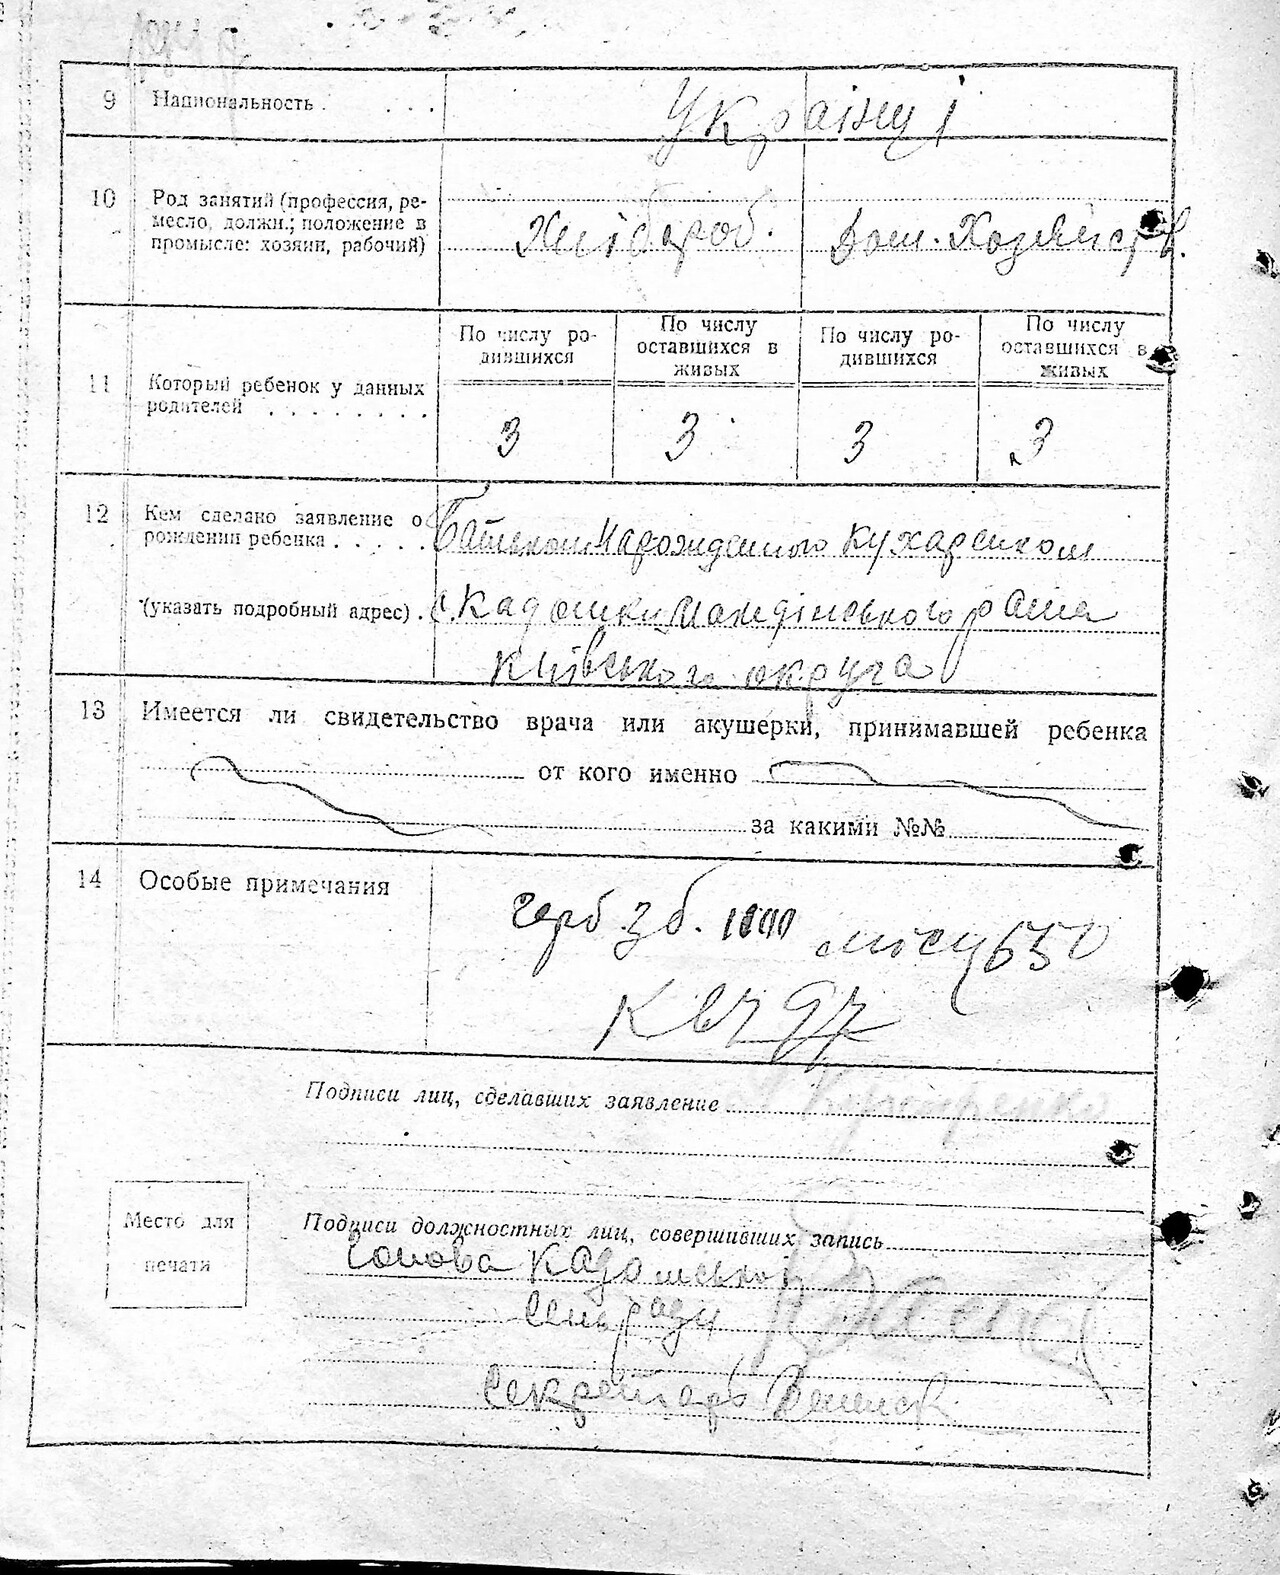 9 Национальность . . . . Українці
10 Род занятий (профессия, ре-
месло, должн.; положение в
промысле: хозяин, рабочий)
Хлібороб. Дом. Хозяйств.
По числу ро-
дившихся
По числу
оставшихся в
живых
По числу ро-
дившихся
По числу
оставшихся в
живых
11 Который ребенок у данных
родителей . . . . . . . .
3 3 3 3
12 Кем сделано заявление о
рождении ребенка . . . . .
Батьком Народженного Кухаренком
(указать подробный адрес) . с. Кадомки района
Київського округа
13 Имеется ли свидетельство врача или акушерки, принимавшей ребенка
от кого именно
за какими №№
14 Особые примечания
герб зб. місц 650
Подписи лиц, сделавших заявление
Место для
печати
Подписи должностных лиц, совершивших запись
Голова Кадомської
Сельради
Секретарь